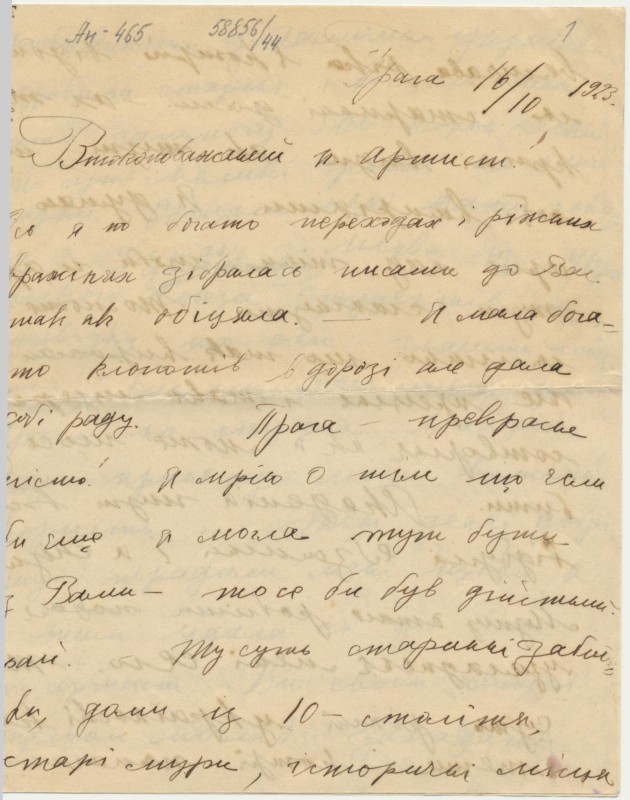 Ан-465 58856/44 1
Прага 16/10 1923.
Високоповажаний п. Артист!
Ось я по богато переходах і ріжних
вражінях зібралась писати до Вас.
так як обіцяла. — Я мала бога=
то клопотів в дорозі але дала
собі раду. Прага — прекрасне
місто! Я мрію о тім що коли
би ще я могла тут бути
з Вами — то се би був дійсний
рай. Ту суть старинні
дами із 10 — столітя,
старі мури, історичні місця